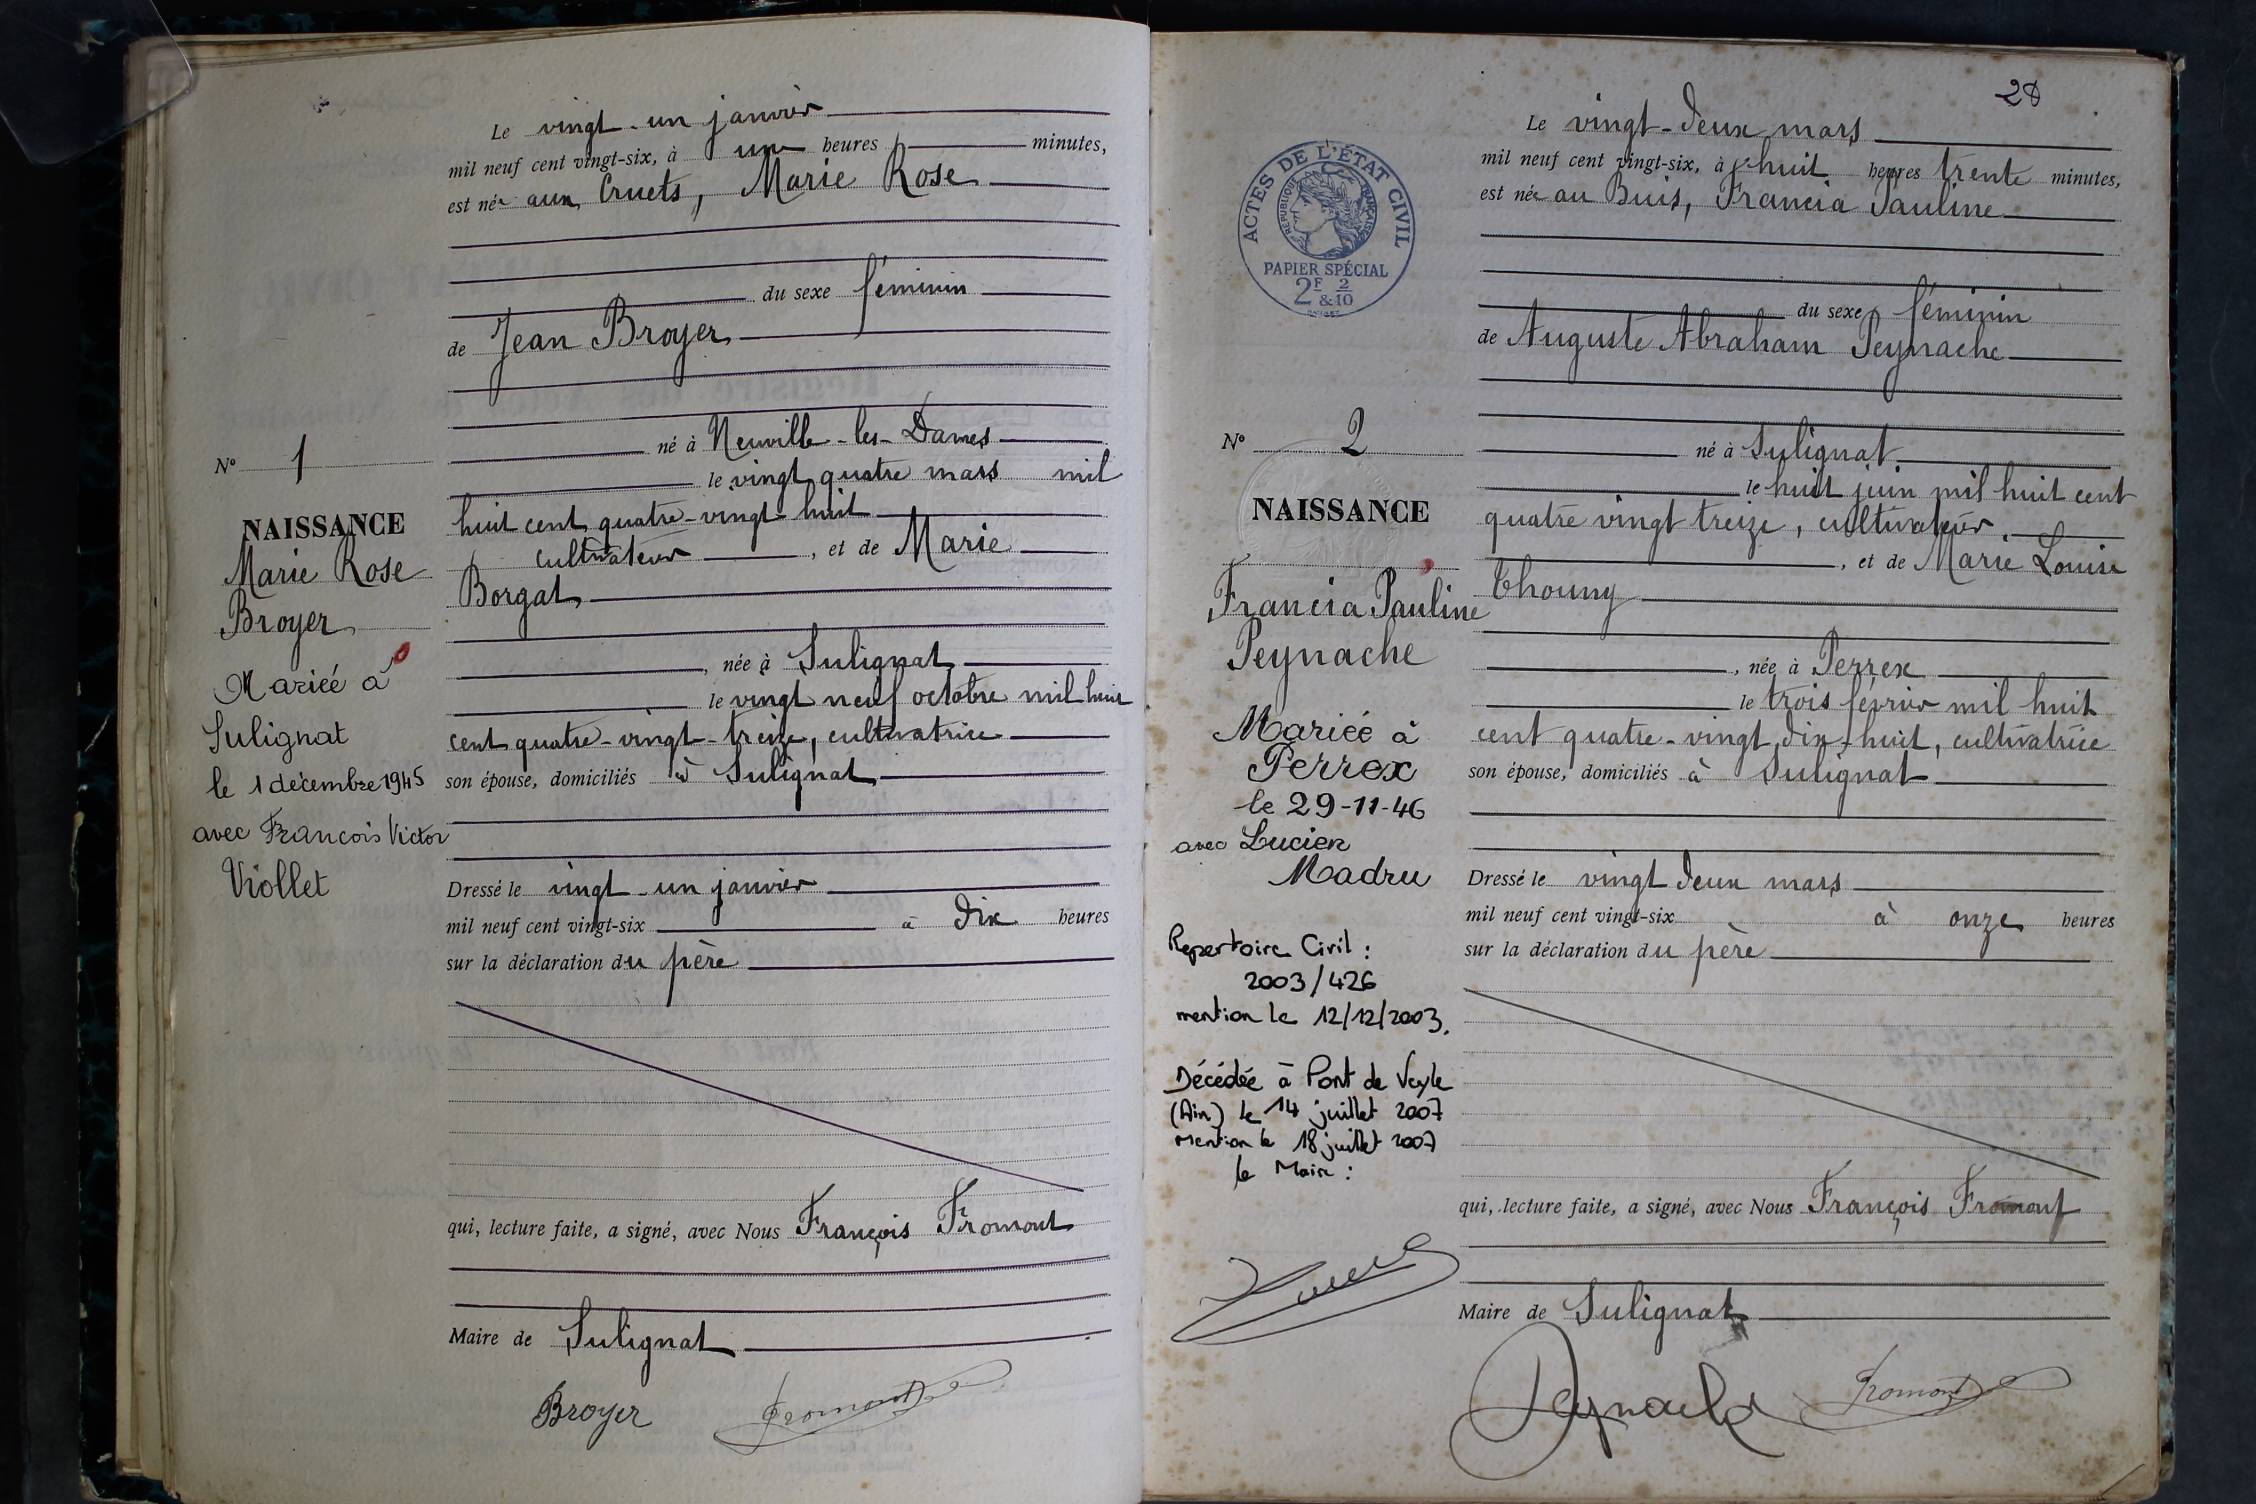 Le vingt-un janvier
mil neuf cent vingt-six, à une heures minutes,
est née aux Cruets, Marie Rose
du sexe féminin
de Jean Broyer
né à Neuville-les-Dames
le vingt quatre mars mil
huit cent quatre-vingt-huit
cultivateur, et de Marie
Borgat
, née à Sulignat
le vingt neuf octobre mil huit
cent quatre-vingt-treize, cultivatrice
son épouse, domiciliés à Sulignat
Dressé le vingt-un janvier
mil neuf cent vingt-six à dix heures
sur la déclaration du père
qui, lecture faite, a signé, avec Nous François Fromont
Maire de Sulignat
Broyer Fromont
N° 1
NAISSANCE
Marie Rose
Broyer
Mariée à
Sulignat
le 1 décembre 1945
avec François Victor
Viollet
28
Le vingt-deux mars
mil neuf cent vingt-six, à huit heures trente minutes,
est née au Buis, Francia Pauline
du sexe féminin
de Auguste Abraham Peynache
né à Sulignat
le huit juin mil huit cent
quatre vingt treize, cultivateur
, et de Marie Louise
Thouny
, née à Perrex
le trois février mil huit
cent quatre-vingt dix-huit, cultivatrice
son épouse, domiciliés à Sulignat
Dressé le vingt deux mars
mil neuf cent vingt-six à onze heures
sur la déclaration du père
qui, lecture faite, a signé, avec Nous François Fromont
Maire de Sulignat
Peynache Fromont
ACTES DE L'ÉTAT CIVIL
RÉPUBLIQUE FRANÇAISE
PAPIER SPÉCIAL
2F 2
&10
N° 2
NAISSANCE
Francia Pauline
Peynache
Mariée à
Perrex
le 29-11-46
avec Lucien
Madru
Repertoire Civil :
2003/426
mention le 12/12/2003.
Décédée à Pont de Veyle
(Ain) le 14 juillet 2007
mention le 18 juillet 2007
le Maire :